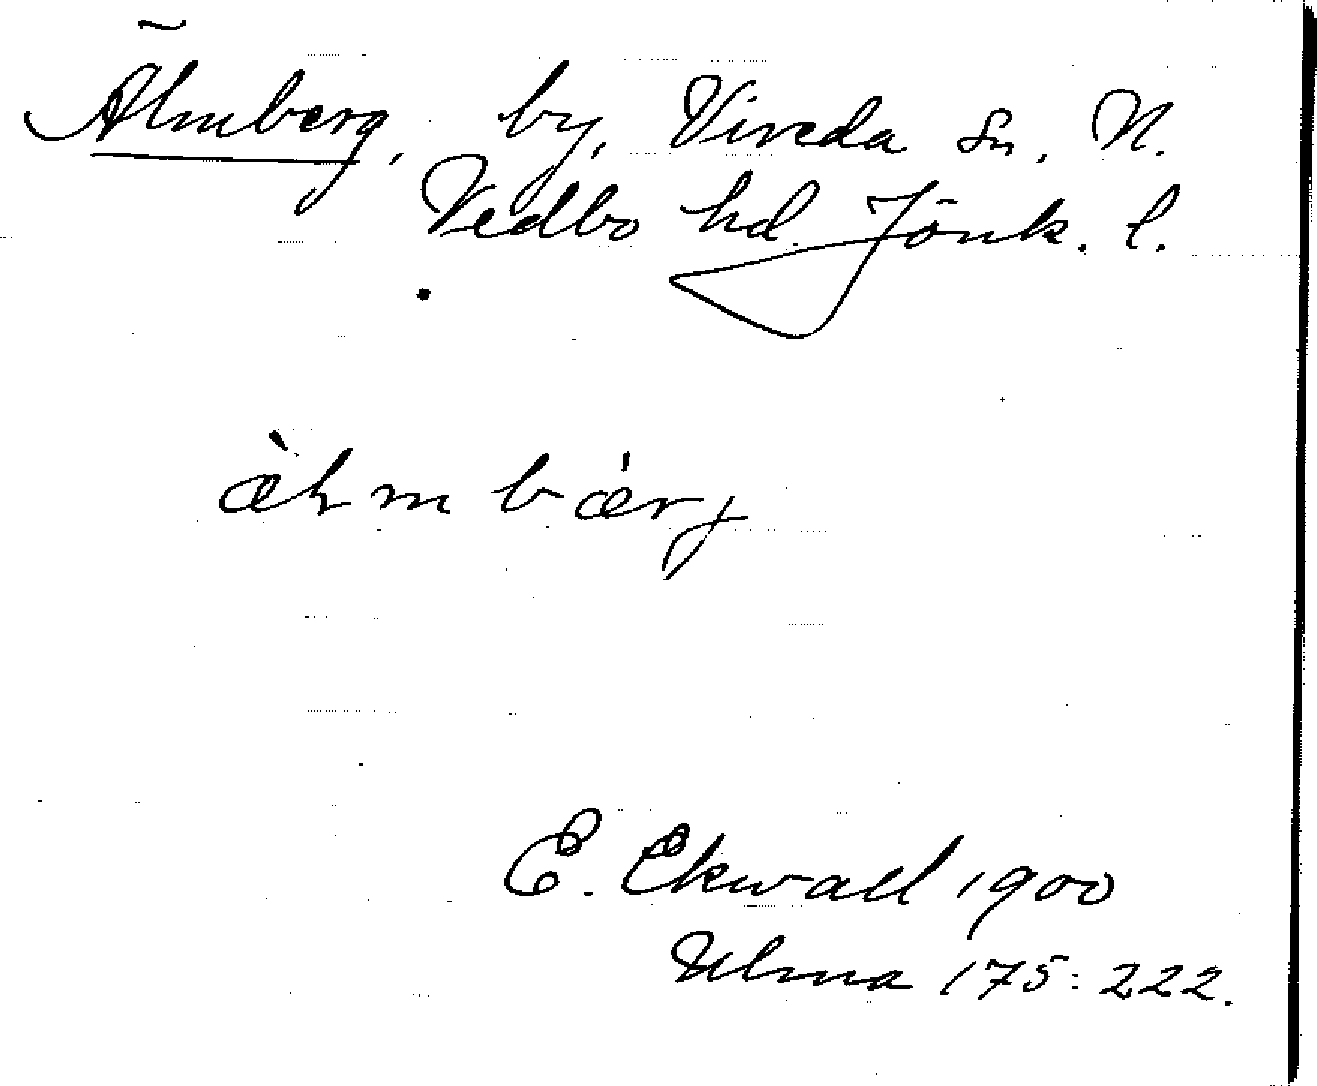 Älmberg, by, Vireda sn, N.
Vedbo hd. Jönk. l.
æ̀lmbæ̀rj
E. Ekwall 1900
Ulma 175:222.